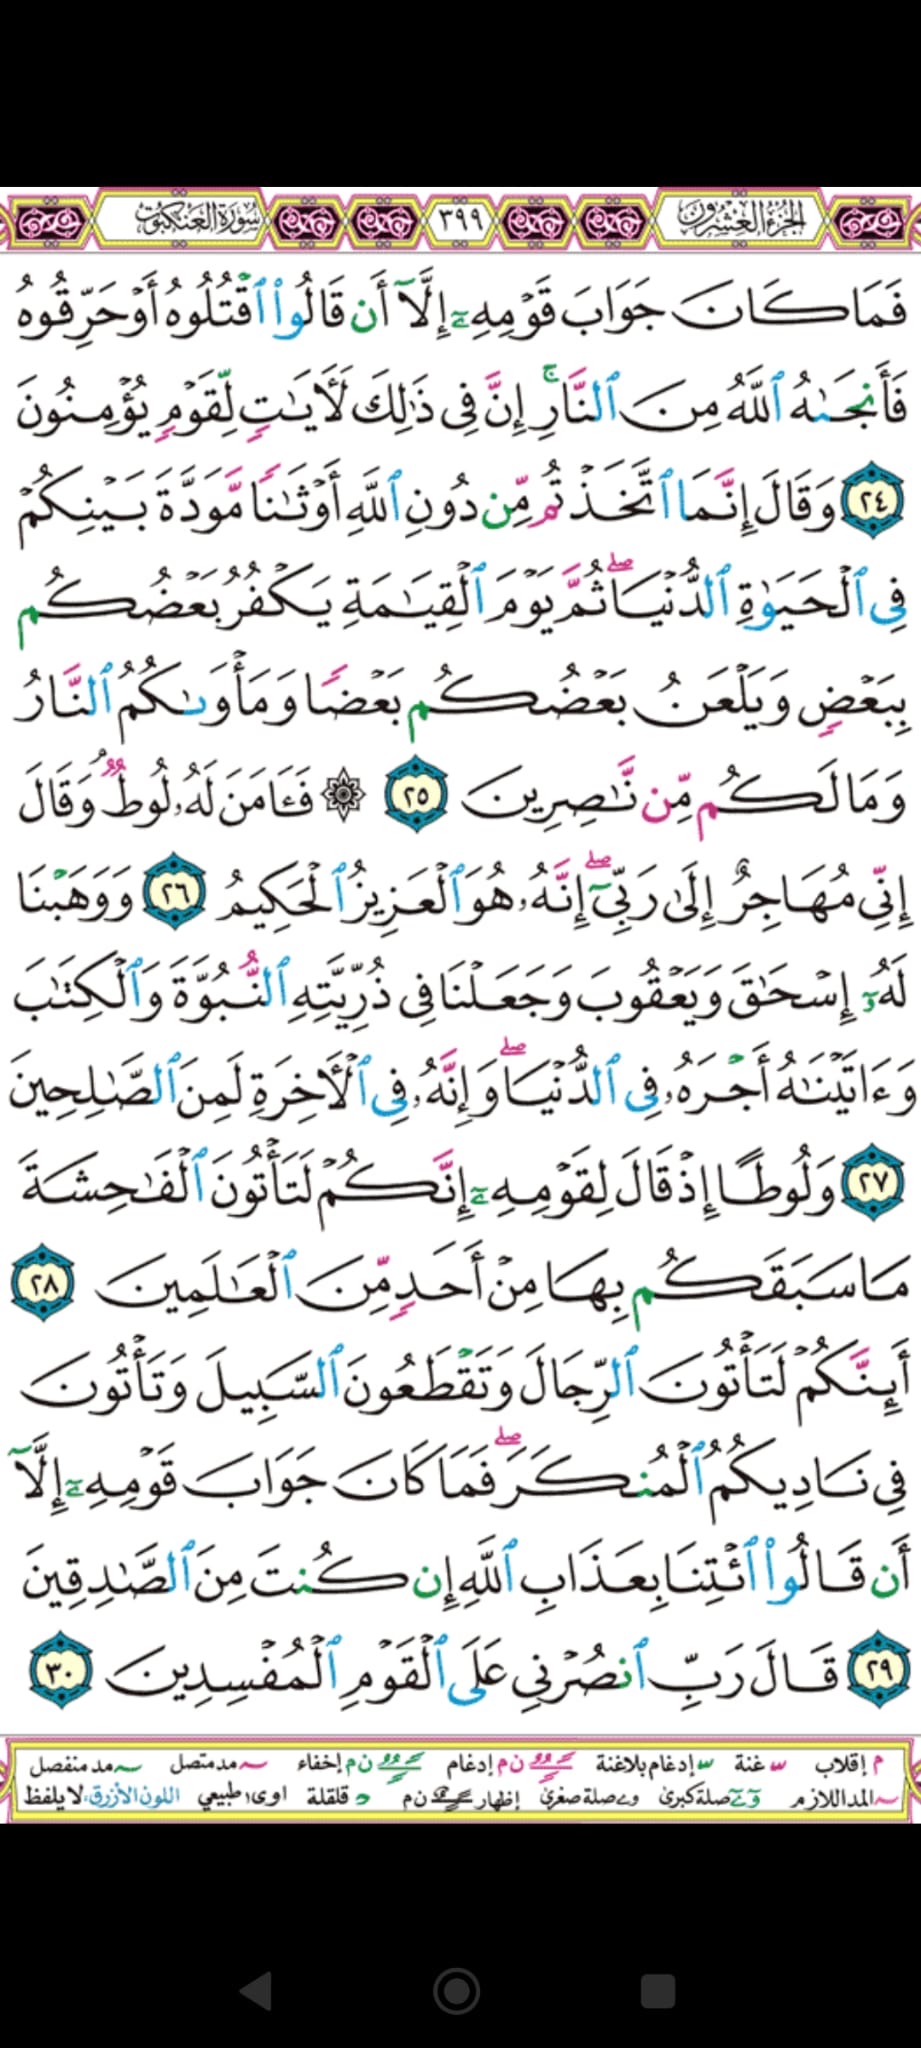 الجزء العشرون ٣٩٩ سورة العنكبوت
فَمَا كَانَ جَوَابَ قَوْمِهِۦٓ إِلَّآ أَن قَالُوا۟ ٱقْتُلُوهُ أَوْ حَرِّقُوهُ
فَأَنجَىٰهُ ٱللَّهُ مِنَ ٱلنَّارِ ۚ إِنَّ فِى ذَٰلِكَ لَـَٔايَـٰتٍ لِّقَوْمٍ يُؤْمِنُونَ
٢٤ وَقَالَ إِنَّمَا ٱتَّخَذْتُم مِّن دُونِ ٱللَّهِ أَوْثَـٰنًا مَّوَدَّةَ بَيْنِكُمْ
فِى ٱلْحَيَوٰةِ ٱلدُّنْيَا ۖ ثُمَّ يَوْمَ ٱلْقِيَـٰمَةِ يَكْفُرُ بَعْضُكُم
بِبَعْضٍ وَيَلْعَنُ بَعْضُكُم بَعْضًا وَمَأْوَىٰكُمُ ٱلنَّارُ
وَمَا لَكُم مِّن نَّـٰصِرِينَ ٢٥ ۞ فَـَٔامَنَ لَهُۥ لُوطٌ ۘ وَقَالَ
إِنِّى مُهَاجِرٌ إِلَىٰ رَبِّىٓ ۖ إِنَّهُۥ هُوَ ٱلْعَزِيزُ ٱلْحَكِيمُ ٢٦ وَوَهَبْنَا
لَهُۥٓ إِسْحَـٰقَ وَيَعْقُوبَ وَجَعَلْنَا فِى ذُرِّيَّتِهِ ٱلنُّبُوَّةَ وَٱلْكِتَـٰبَ
وَءَاتَيْنَـٰهُ أَجْرَهُۥ فِى ٱلدُّنْيَا ۖ وَإِنَّهُۥ فِى ٱلْـَٔاخِرَةِ لَمِنَ ٱلصَّـٰلِحِينَ
٢٧ وَلُوطًا إِذْ قَالَ لِقَوْمِهِۦٓ إِنَّكُمْ لَتَأْتُونَ ٱلْفَـٰحِشَةَ
مَا سَبَقَكُم بِهَا مِنْ أَحَدٍ مِّنَ ٱلْعَـٰلَمِينَ ٢٨
أَئِنَّكُمْ لَتَأْتُونَ ٱلرِّجَالَ وَتَقْطَعُونَ ٱلسَّبِيلَ وَتَأْتُونَ
فِى نَادِيكُمُ ٱلْمُنكَرَ ۖ فَمَا كَانَ جَوَابَ قَوْمِهِۦٓ إِلَّآ
أَن قَالُوا۟ ٱئْتِنَا بِعَذَابِ ٱللَّهِ إِن كُنتَ مِنَ ٱلصَّـٰدِقِينَ
٢٩ قَالَ رَبِّ ٱنصُرْنِى عَلَى ٱلْقَوْمِ ٱلْمُفْسِدِينَ ٣٠
م إقلاب غنة إدغام بلاغنة ن م إدغام ن م إخفاء مد متصل مد منفصل
المد اللازم صلة كبرى صلة صغرى إظهار ن م قلقلة اوى طبيعي اللون الأزرق، لا يلفظ